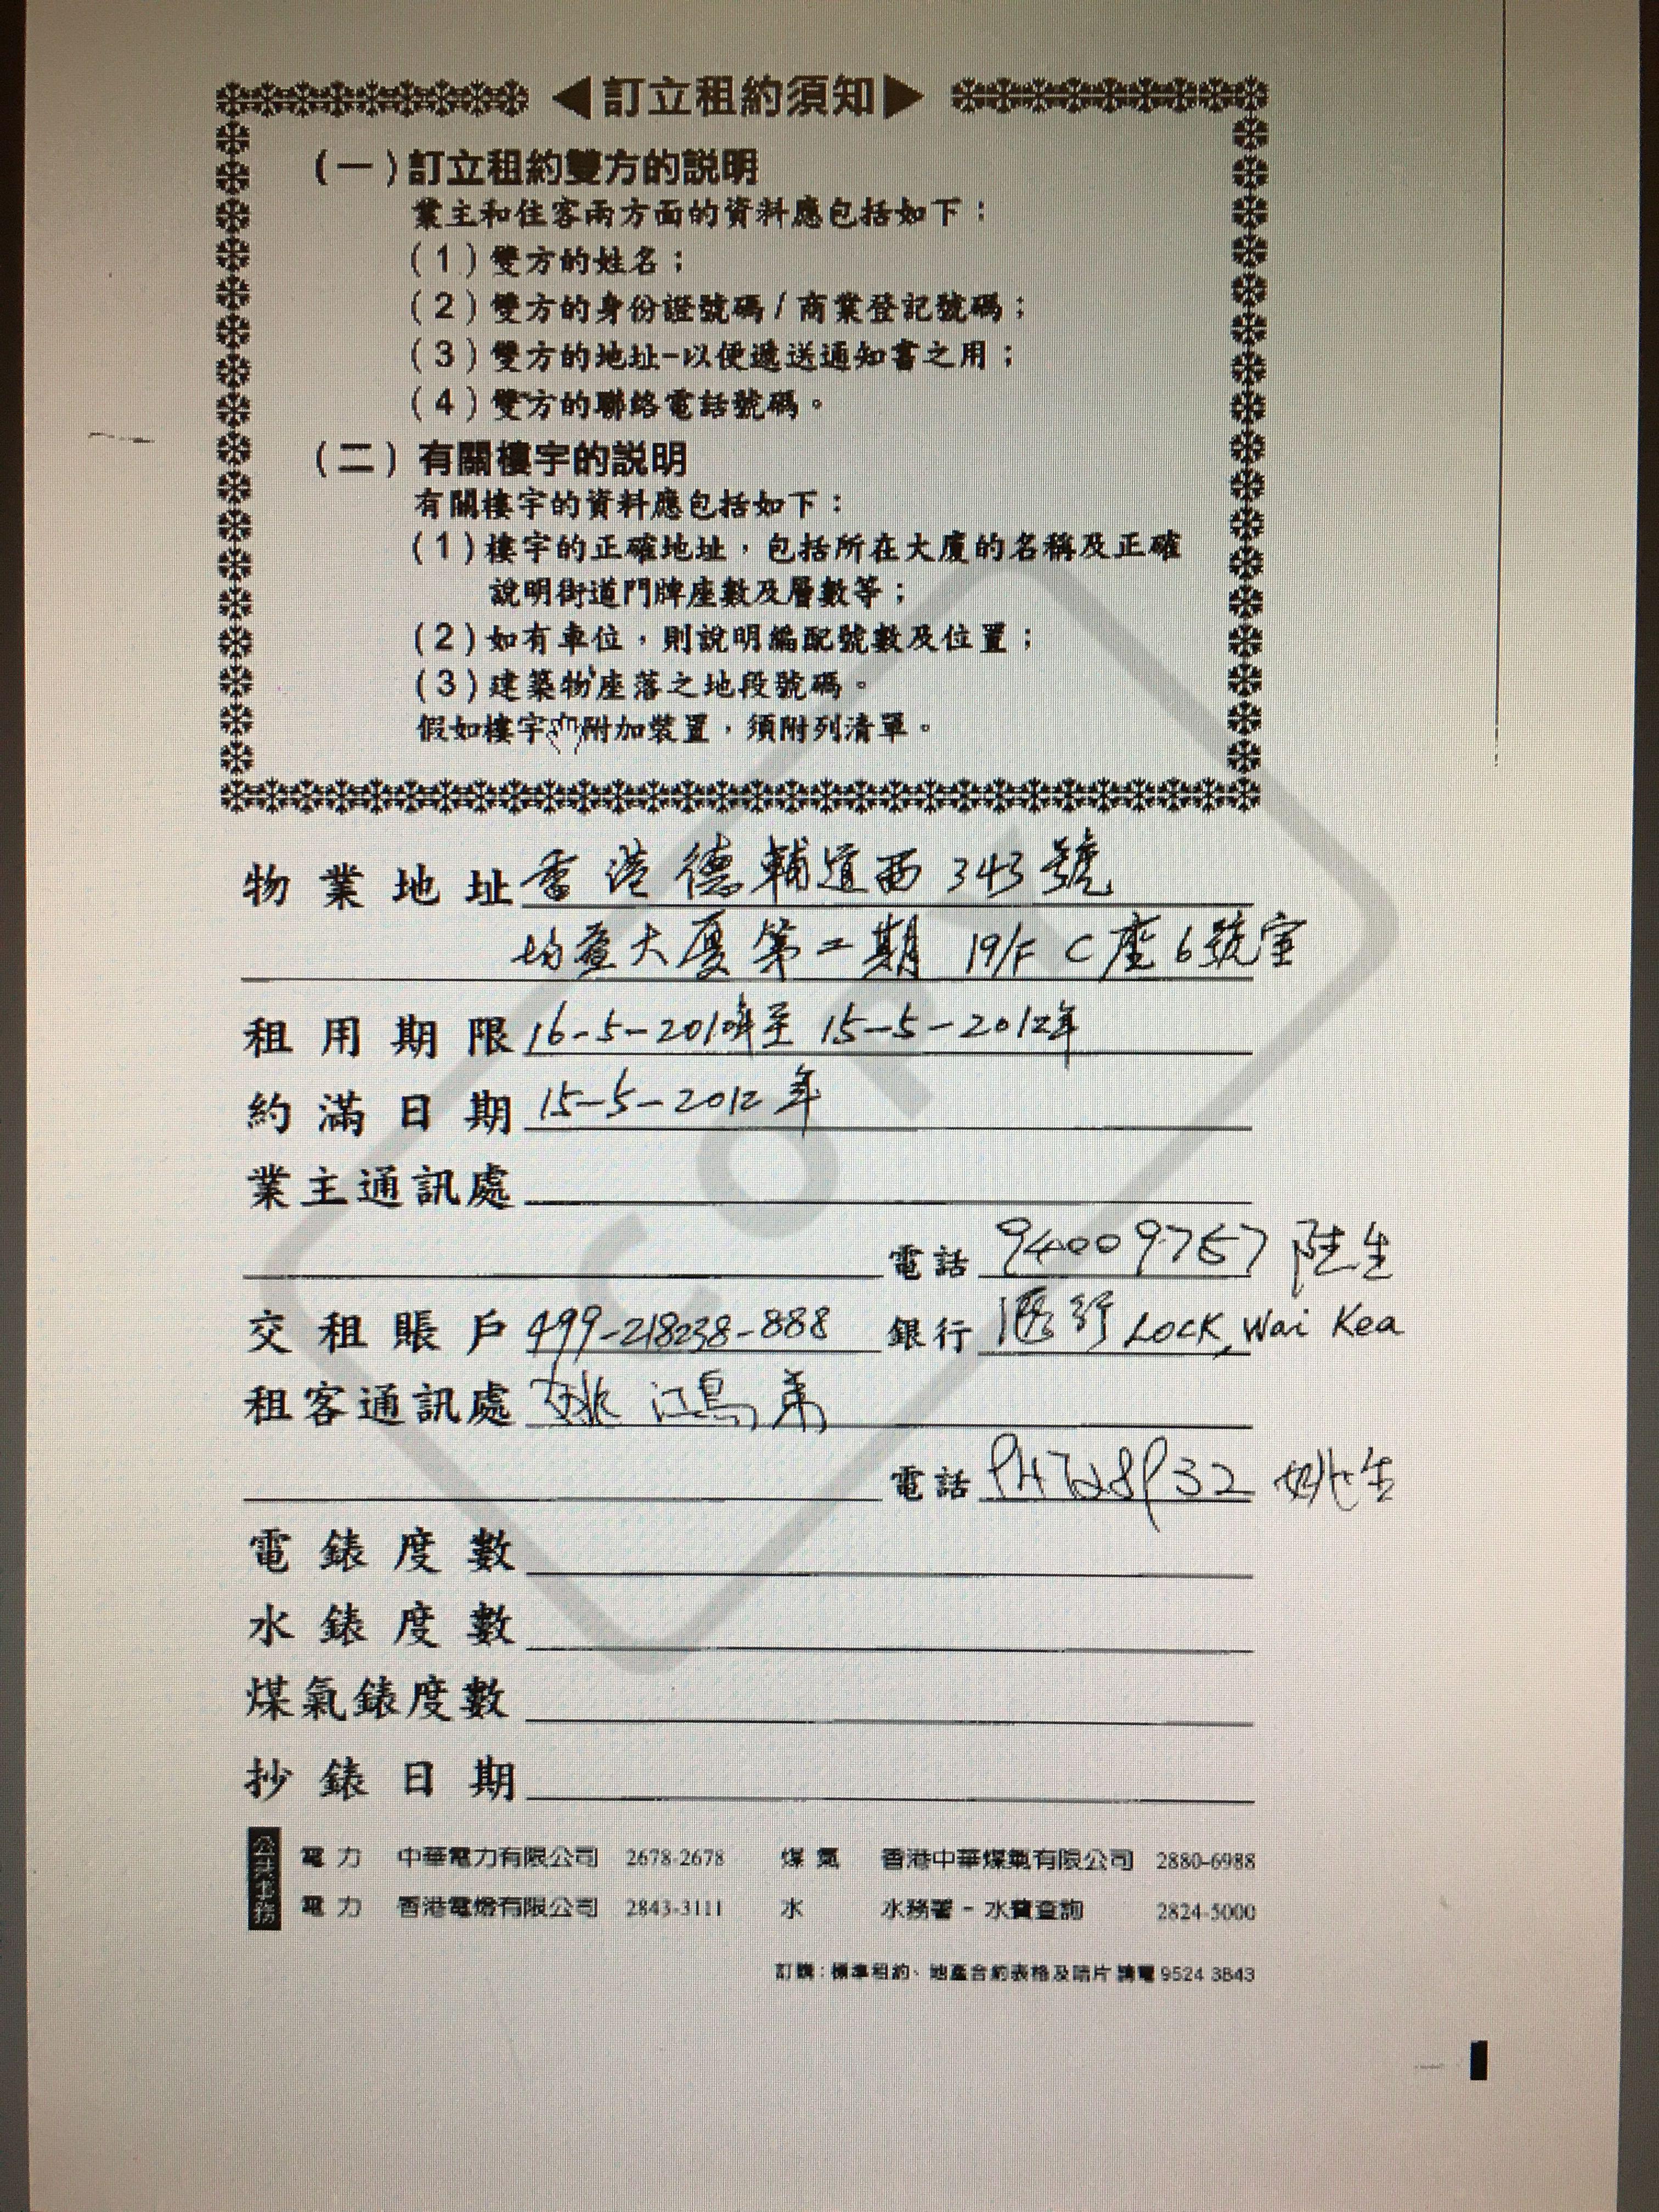 ◀訂立租約須知▶
(一)訂立租約雙方的説明
業主和住客兩方面的資料應包括如下：
(1)雙方的姓名；
(2)雙方的身份證號碼/商業登記號碼；
(3)雙方的地址-以便遞送通知書之用；
(4)雙方的聯絡電話號碼。
(二)有關樓宇的説明
有關樓宇的資料應包括如下：
(1)樓宇的正確地址，包括所在大廈的名稱及正確
說明街道門牌座數及層數等；
(2)如有車位，則說明編配號數及位置；
(3)建築物座落之地段號碼。
假如樓宇附加裝置，須附列清單。
COPY
物業地址 香港德輔道西 343號
均益大廈第二期 19/F C座6號室
租用期限 16-5-2010年至 15-5-2012年
約滿日期 15-5-2012年
業主通訊處
電話 94009757 陸生
交租賬戶 499-218238-888 銀行 Lock, Wai Kea
租客通訊處 姚
電話 姚生
電錶度數
水錶度數
煤氣錶度數
抄錶日期
公共事務
電力 中華電力有限公司 2678-2678 煤氣 香港中華煤氣有限公司 2880-6988
電力 香港電燈有限公司 2843-3111 水 水務署-水費查詢 2824-5000
訂購：標準租約、地產合約表格及咭片 請電 9524 3843